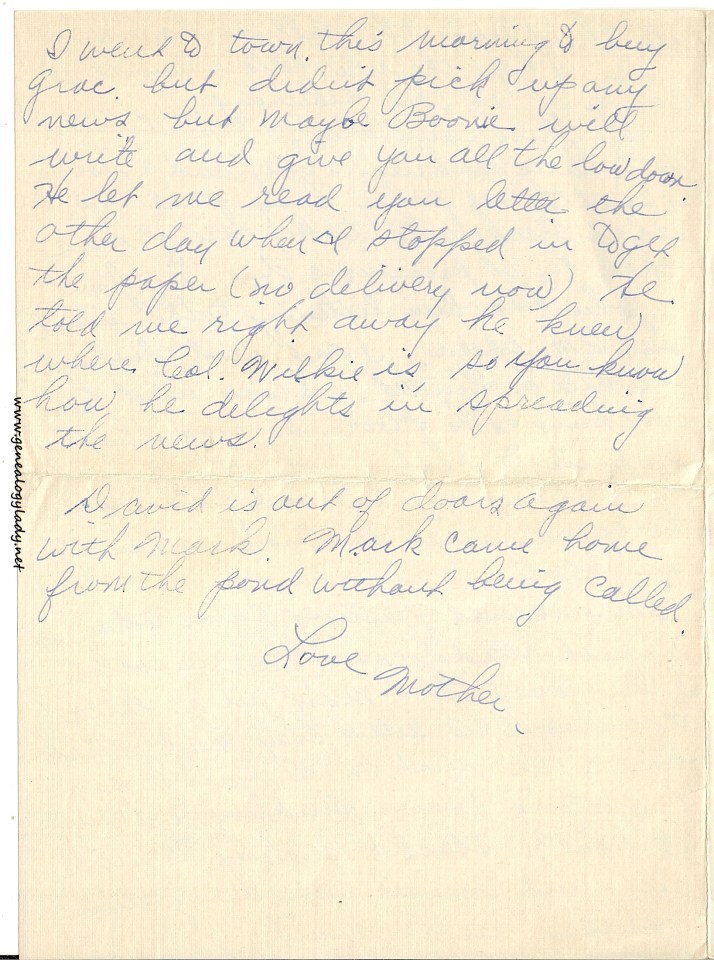 I went to town this morning to buy
Groc. but didn't pick up any
news but maybe Boonie will
write and give you all the low down.
He let me read you letter the
other day when I stopped in to get
the paper (no delivery now) He
told me right away he knew
where Col. Wilkie is, so you know
how he delights in spreading
the news.
David is out of doors again
with Mark. Mark came home
from the pond without being called.
Love
Mother
www.genealogylady.net